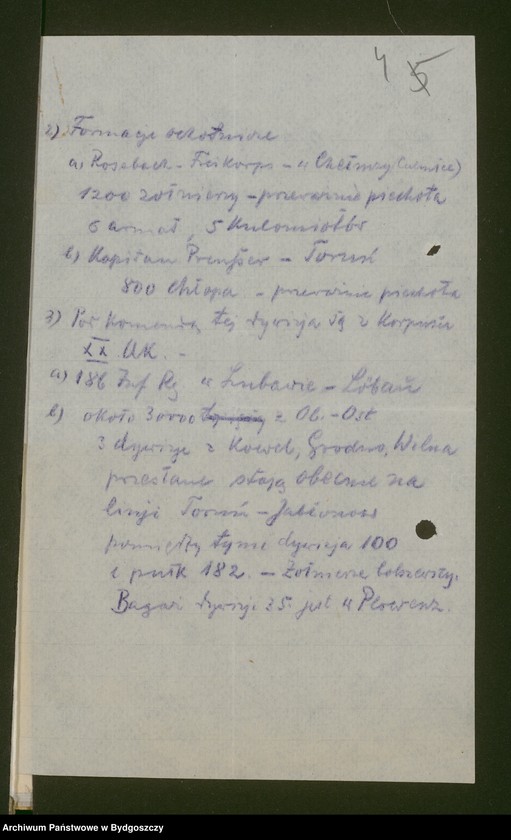 4 5
2) Formacje ochotnicze
a) Rosebach - Freikorps - w Chełmży (Culmsee)
1200 żołnierzy - przeważnie piechota
6 armat, 5 kulomiotów
b) Kapitan Preusser - Toruń
800 chłopa - przeważnie piechota
3) Pod komendą tej dywizji są z Korpusu
XX AK. -
a) 186 Inf Rg w Lubawie - Löbau
b) około 30000 z Ob.-Ost
3 dywizje z Kowel, Grodno, Wilna
przesłane stoją obecnie na
linji Toruń - Jabłonowo
pomiędzy tymi dywizja 100
i pułk 182. - Żołnierze bolszewscy.
Bagaż dywizji 35. jest w Plowenz.
Archiwum Państwowe w Bydgoszczy